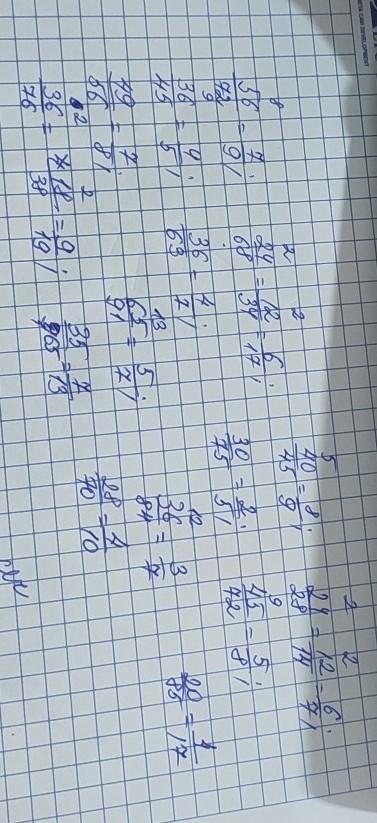 56/72 = 7/9; 24/68 = 12/34 = 6/17; 40/45 = 8/9; 24/28 = 12/14 = 6/7;
36/45 = 4/5; 36/63 = 4/7; 30/75 = 2/5; 45/72 = 5/8;
49/56 = 7/8; 65/91 = 5/7; 36/84 = 3/7 20/85 = 4/17
36/76 = 18/38 = 9/19; 35/65 = 7/13 28/70 = 4/10